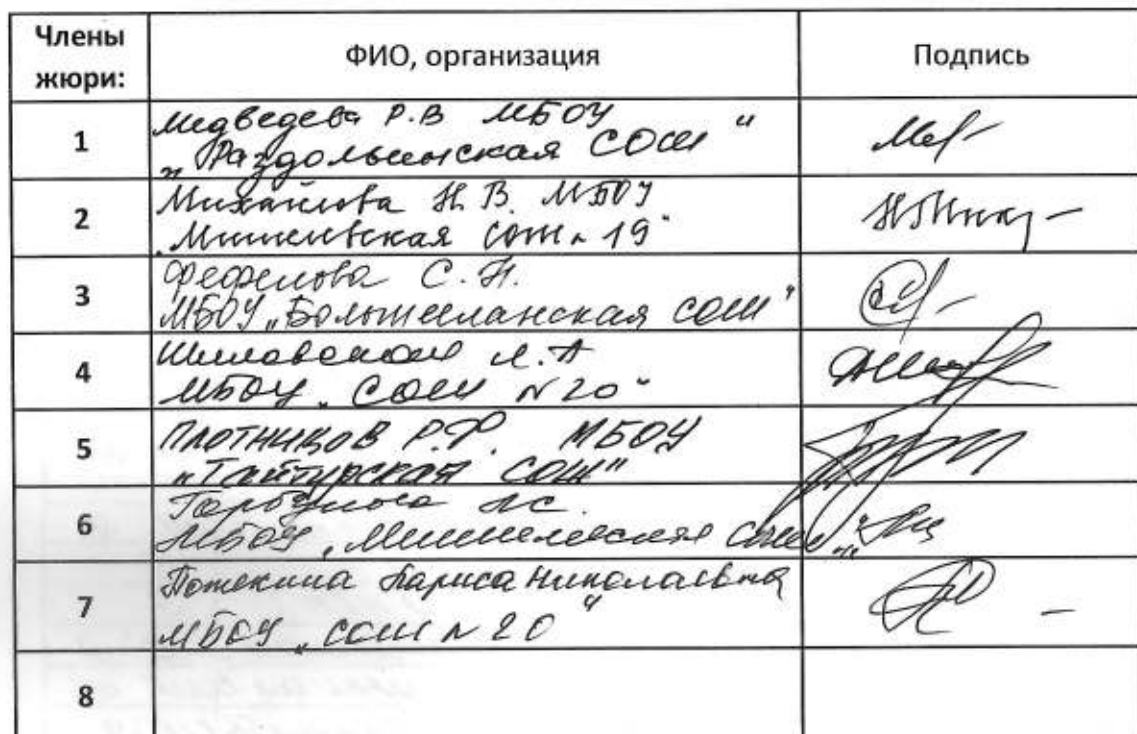 Члены жюри: ФИО, организация Подпись
1 Медведева Р.В МБОУ
"Раздольинская СОШ"
2 Михайлова Н.В. МБОУ
"Мишелевская СОШ №19"
3 Фефелова С.Н.
МБОУ "Большееланская СОШ"
4 Шиловская Л.А
МБОУ "СОШ №20"
5 Плотников Р.Ф. МБОУ
"Тайтурская СОШ"
6 Горбунова
МБОУ "Мишелевская СОШ"
7 Потекина Лариса Николаевна
МБОУ "СОШ №20"
8